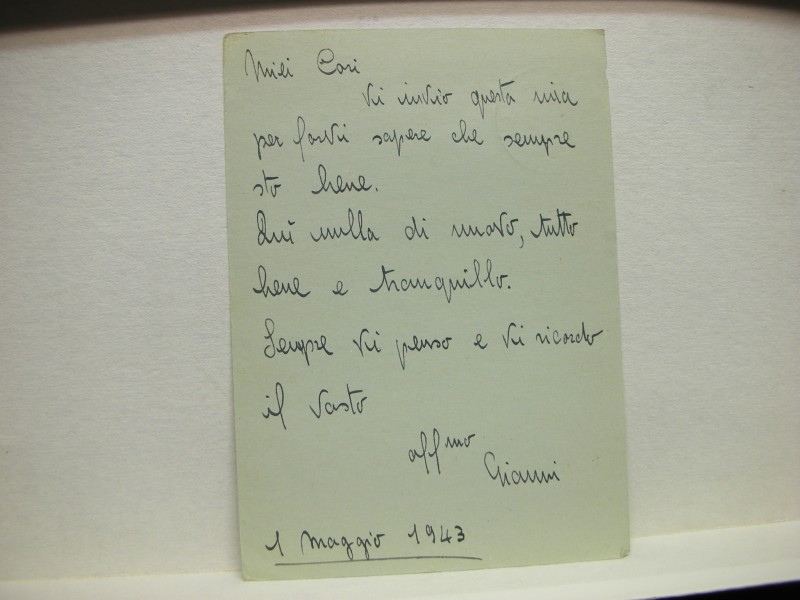 Miei Cari
Vi invio questa mia
per farvi sapere che sempre
sto bene.
Quì nulla di nuovo, tutto
bene e tranquillo.
Sempre Vi penso e Vi ricordo
il Vostro
aff.mo
Gianni
1 Maggio 1943